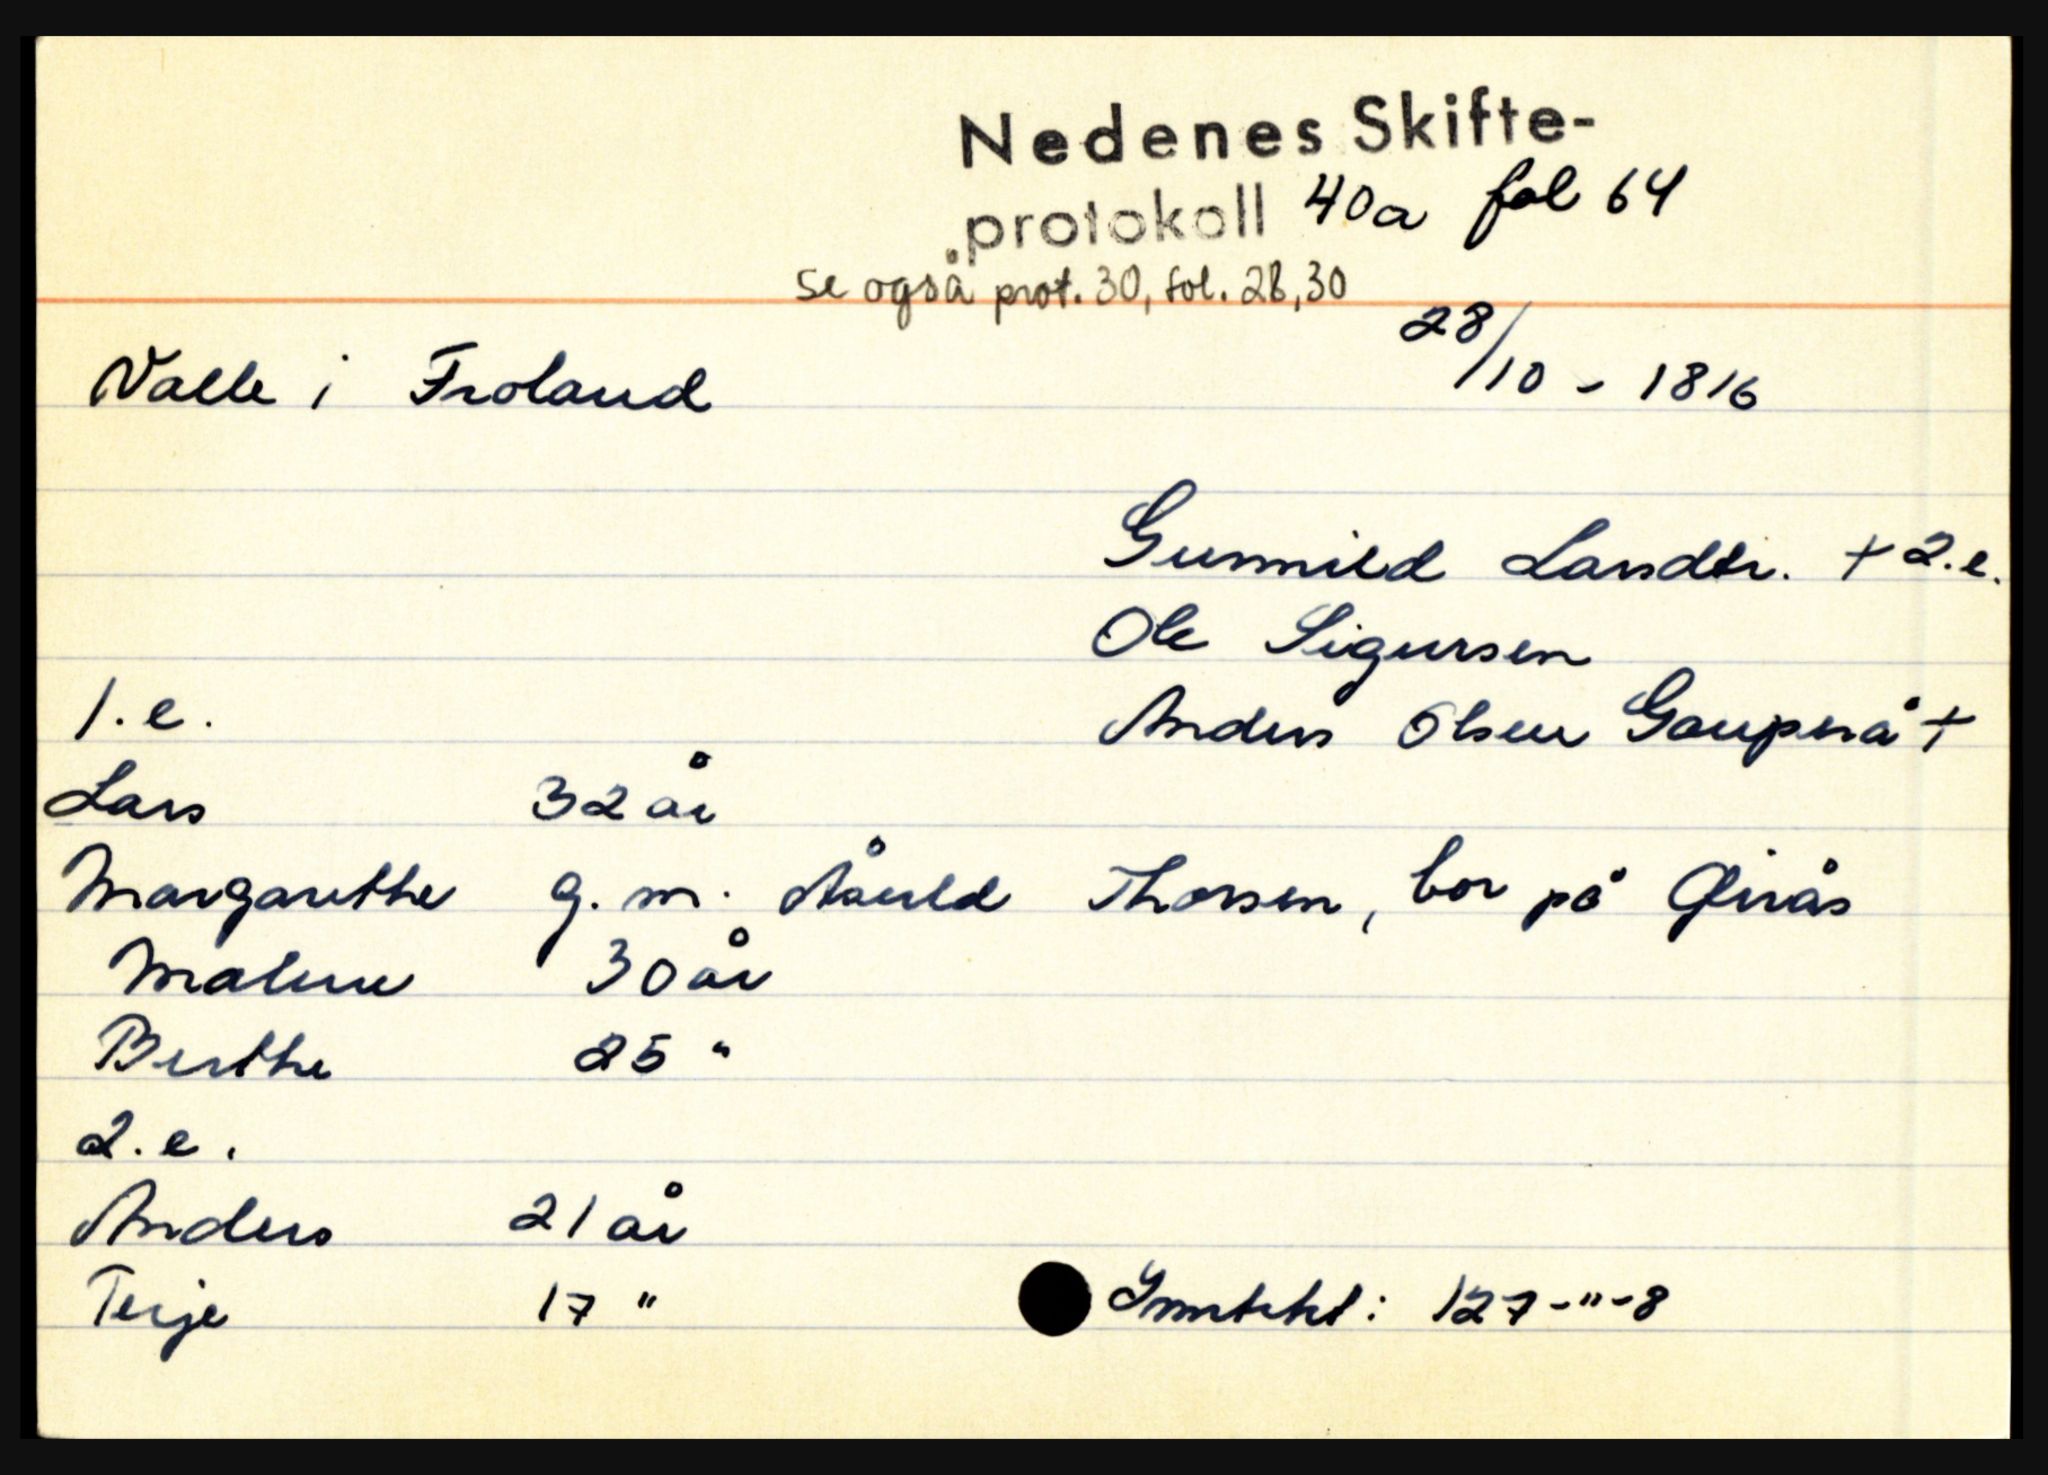 Nedenes Skifte-
protokoll 40a fol 64
se også prot. 30, fol. 28, 30
28/10 - 1816
Valle i Froland
Gunnild Larsdtr. + 2.e.
Ole Sigursen
1.e.
Anders Olsen Gauperå +
Lars 32 år
Margarethe g.m. Aasuld Thorsen, bor på Øinås
Malene 30 år
Berthe 25 "
2.e.
Anders 21 år
Terje 17 "
Inntekt: 127-"-8